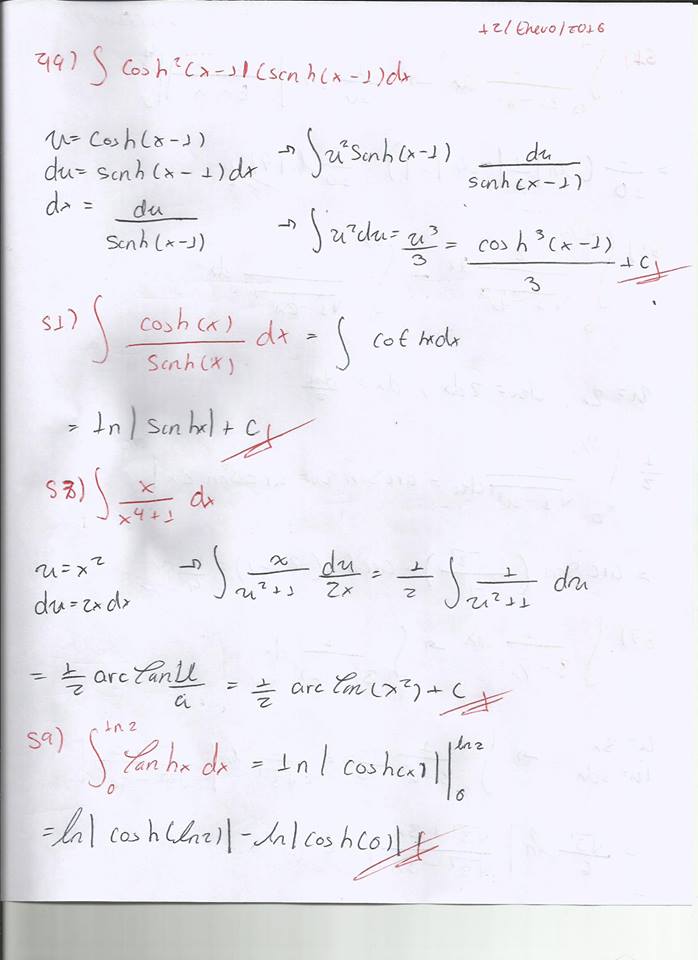 12/Enero/2016
49) ∫ cosh²(x-1)(senh(x-1)dx
u = cosh(x-1) → ∫u² senh(x-1) du/senh(x-1)
du = senh(x-1)dx
dx = du/senh(x-1) → ∫u²du = u³/3 = cosh³(x-1)/3 + c
51) ∫ cosh(x)/senh(x) dx = ∫ cot hxdx
= ln|senhx| + c
53) ∫ x/x⁴+1 dx
u = x² → ∫ x/u²+1 du/2x = 1/2 ∫ 1/u²+1 du
du = 2x dx
= 1/2 arc tan u/a = 1/2 arc tan(x²) + c
59) ∫₀^ln2 tanhx dx = ln|cosh(x)||₀^ln2
= ln|cosh(ln2)| - ln|cosh(0)|